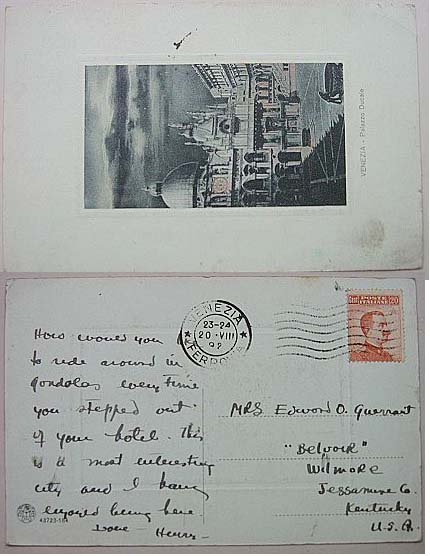 VENEZIA - Palazzo Ducale
VENEZIA
23-24
20·VIII
92
FERROVIA
POSTE ITALIANE
Cent 20
How would you
to ride around in
gondolas every time
you stepped out
of your hotel. This
is a most interesting
city and I
enjoyed being here
Love Henry-
MRS Edword O. Guerrant
"Belvoir"
Wilmore
Jessamine Co.
Kentucky
U.S.A.